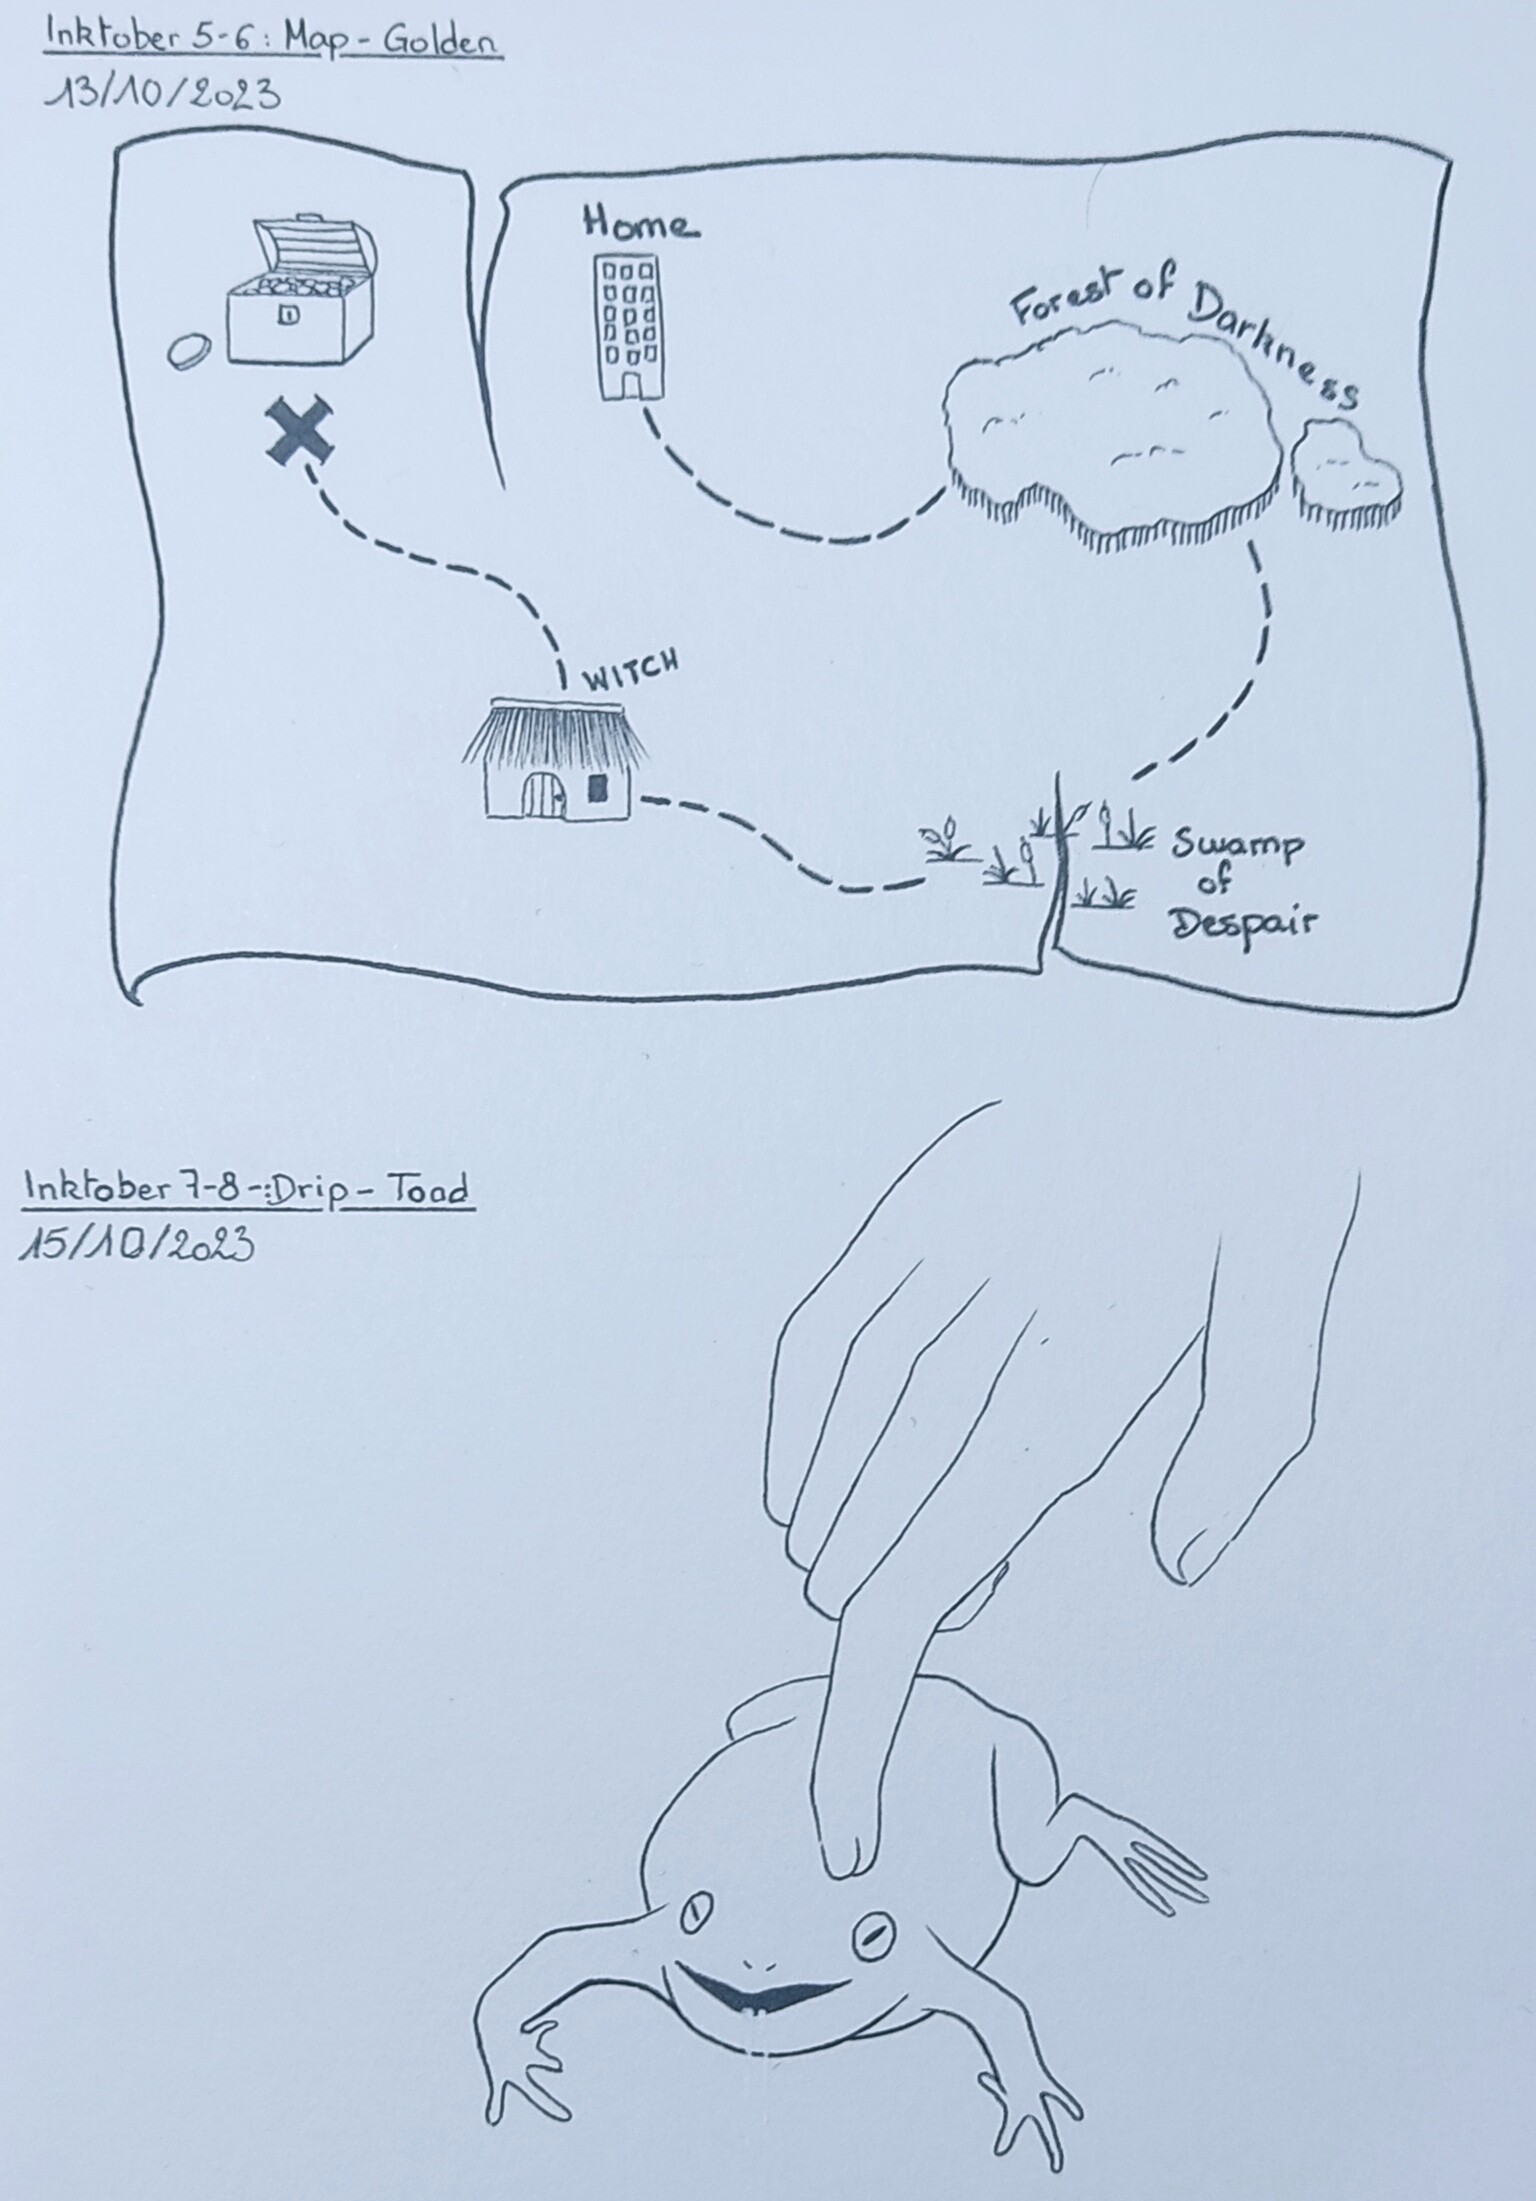 Inktober 5-6: Map - Golden
13/10/2023
Home
Forest of Darkness
WITCH
Swamp
of
Despair
Inktober 7-8-:Drip - Toad
15/10/2023